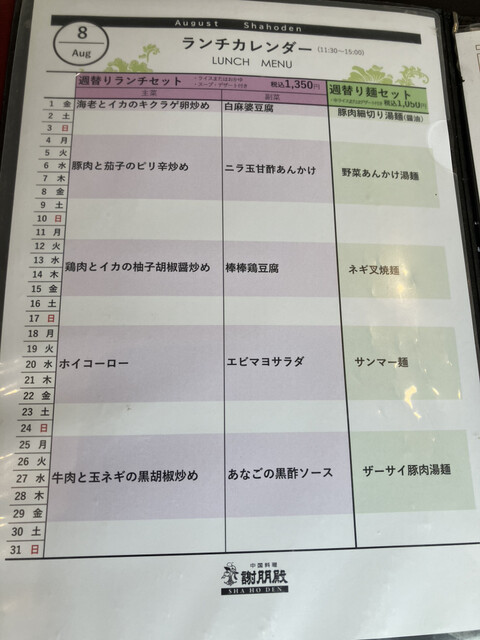 August Shahoden
8
Aug
ランチカレンダー (11:30~15:00)
LUNCH MENU
週替りランチセット ・ライスまたはおかゆ ・スープ・デザート付き 税込1,350円
主菜 副菜
週替り麺セット
・ライスまたはデザート付き 税込1,050円
1 金 海老とイカのキクラゲ卵炒め 白麻婆豆腐
2 土 豚肉細切り湯麺(醤油)
3 日
4 月
5 火
6 水 豚肉と茄子のピリ辛炒め ニラ玉甘酢あんかけ 野菜あんかけ湯麺
7 木
8 金
9 土
10 日
11 月
12 火
13 水 鶏肉とイカの柚子胡椒醤炒め 棒棒鶏豆腐 ネギ叉焼麺
14 木
15 金
16 土
17 日
18 月
19 火
20 水 ホイコーロー エビマヨサラダ サンマー麺
21 木
22 金
23 土
24 日
25 月
26 火
27 水 牛肉と玉ネギの黒胡椒炒め あなごの黒酢ソース ザーサイ豚肉湯麺
28 木
29 金
30 土
31 日
中国料理
謝朋殿
SHA HO DEN